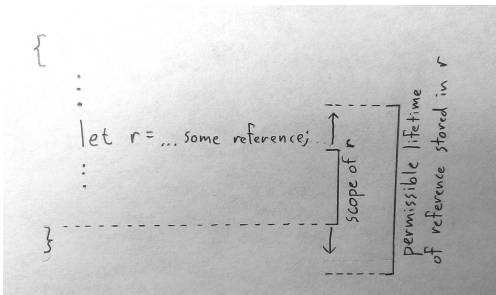 {
⋮
let r = ... some reference;
⋮
}
scope of r
permissible lifetime
of reference stored in r